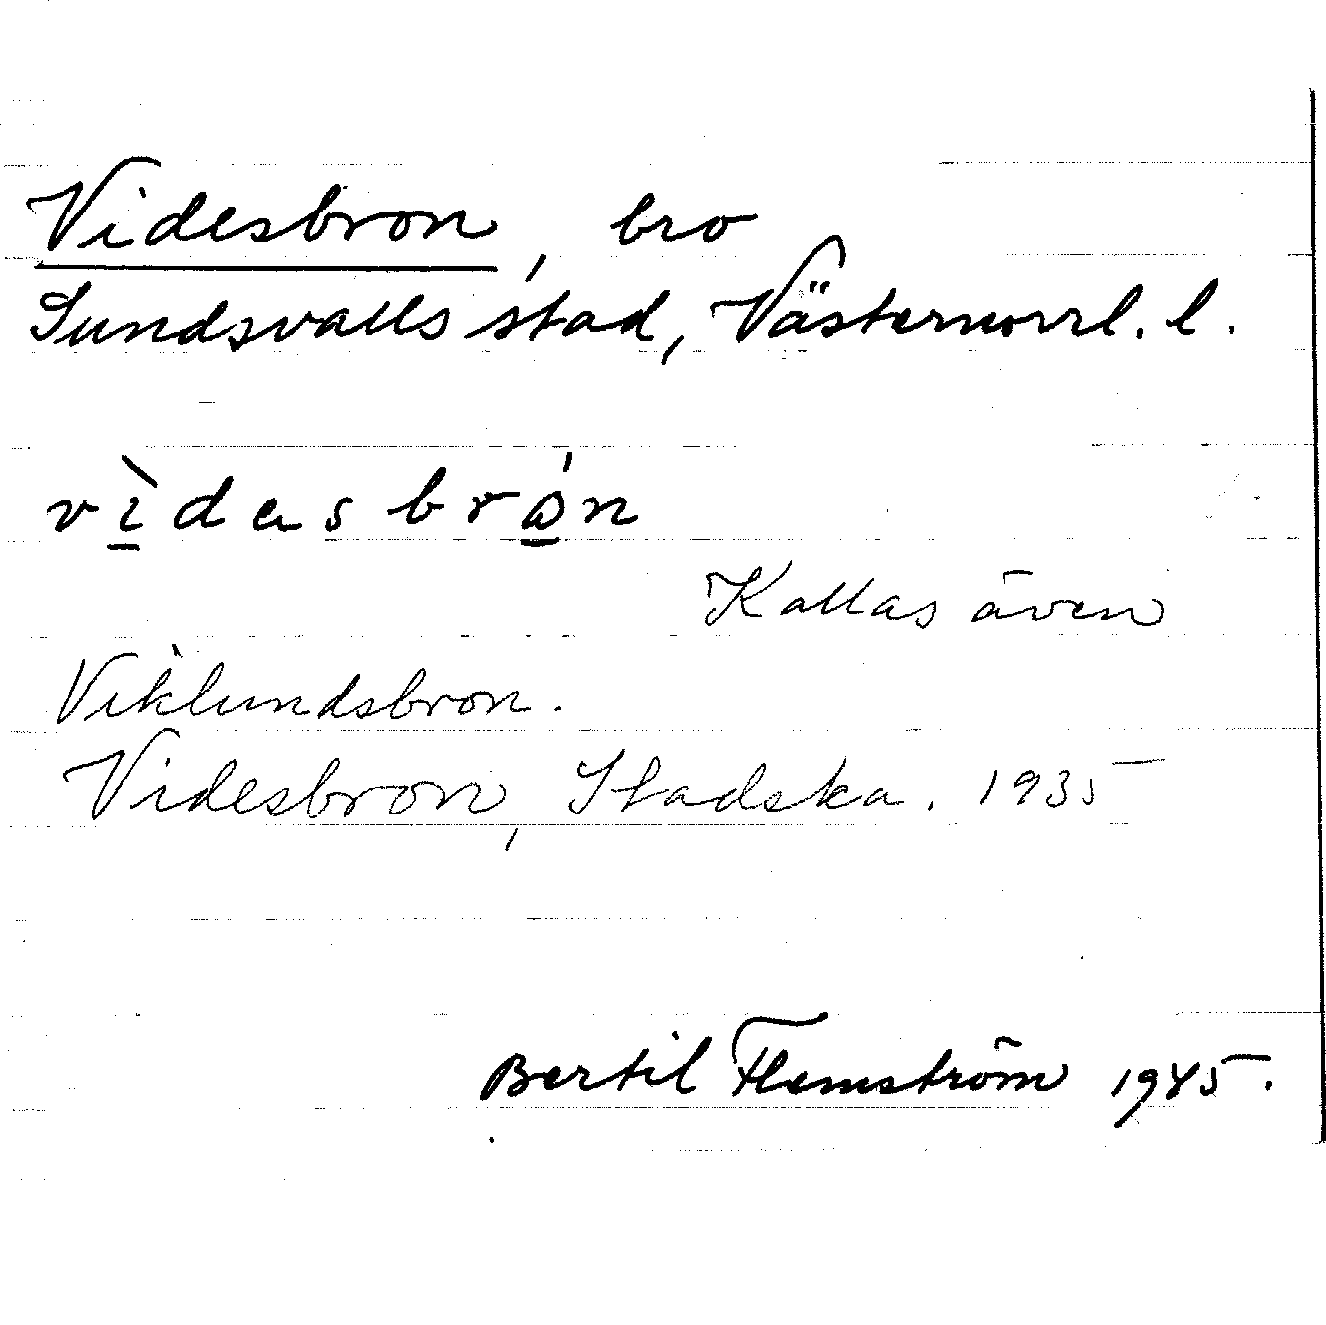 Videsbron, bro
Sundsvalls stad, Västernorrl. l.
vìdasbrón
Kallas även
Viklundsbron.
Videsbron, Stadska. 1935
Bertil Flemström 1945.